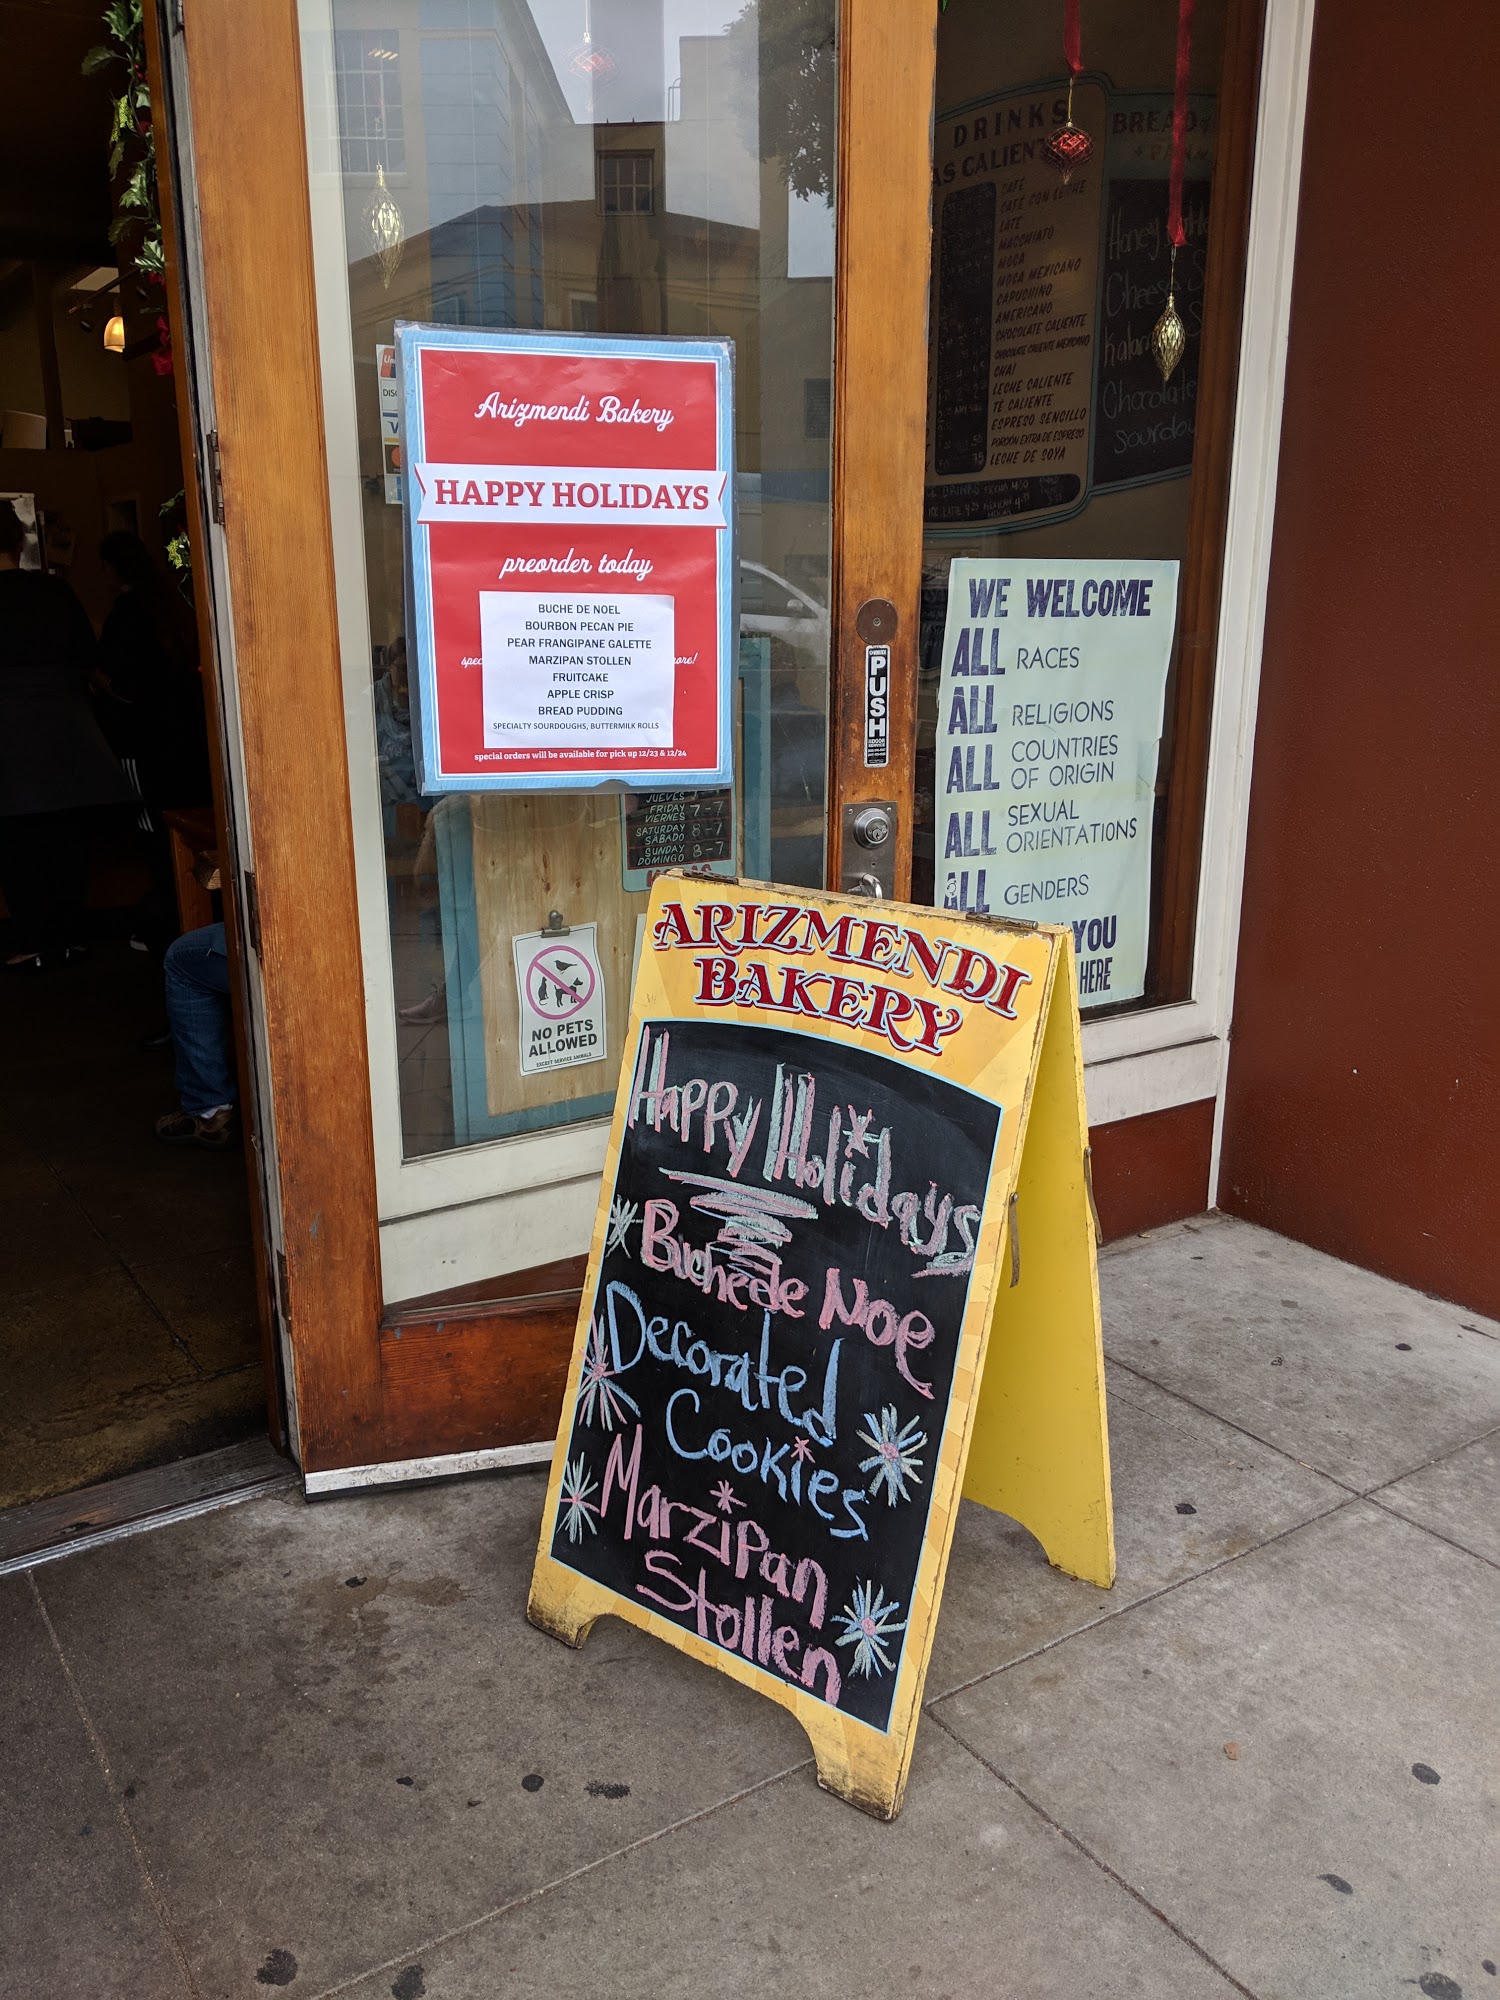 Arizmendi Bakery
HAPPY HOLIDAYS
preorder today
BUCHE DE NOEL
BOURBON PECAN PIE
PEAR FRANGIPANE GALETTE
MARZIPAN STOLLEN
FRUITCAKE
APPLE CRISP
BREAD PUDDING
SPECIALTY SOURDOUGHS, BUTTERMILK ROLLS
special orders will be available for pick up 12/23 & 12/24
JUEVES
FRIDAY 7-7
VIERNES
SATURDAY 8-7
SÁBADO
SUNDAY 8-7
DOMINGO
NO PETS
ALLOWED
EXCEPT SERVICE ANIMALS
PUSH
DRINKS
CALIEN
CAFÉ
CAFÉ CON LECHE
LATE
MACCHIATO
MOCA
MOSA MEXICANO
CAPUCHINO
AMERICANO
CHOCOLATE CALIENTE
CHOCOLATE CALIENTE MEXICANO
CHAI
LECHE CALIENTE
TÉ CALIENTE
ESPRESO SENCILLO
PORCIÓN EXTRA DE ESPRESO
LECHE DE SOYA
BREAD
PAN
Honey
Cheese
Chocolate
Sourdou
WE WELCOME
ALL RACES
ALL RELIGIONS
ALL COUNTRIES
OF ORIGIN
ALL SEXUAL
ORIENTATIONS
ALL GENDERS
YOU
HERE
ARIZMENDI
BAKERY
Happy Holidays
Buche de Noe
Decorated
Cookies
Marzipan
Stollen